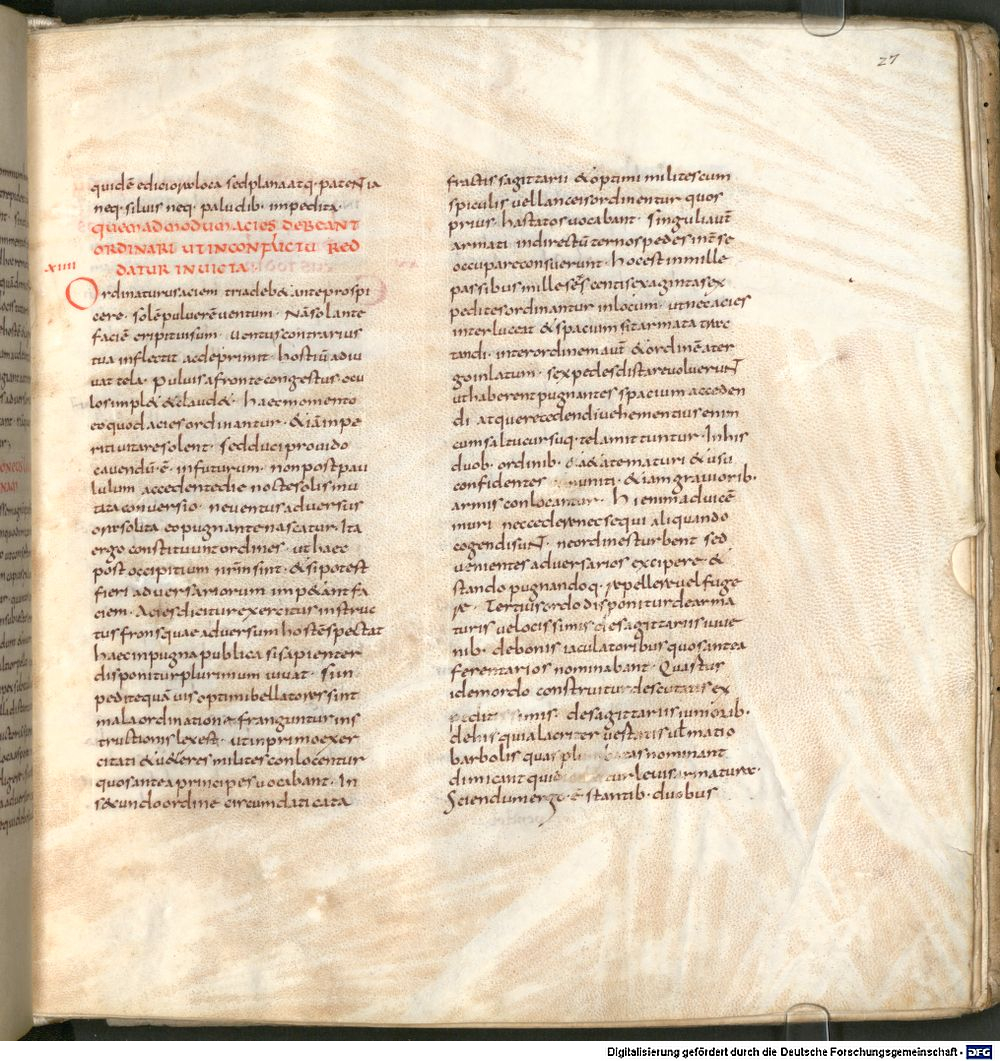 27
quidē edicioroloca sedplanaatq· pateNtia
neq· siluis neq· paludib· impedita·
QUEMADMODUM ACIES DEBEANT
ORDINARI UT INCONFLICTU RED
DATUR INUICTA
XIIII
Ordinaturusaciem triadeb& anteprospi
cere· solē puluerē uentum· Nā solante
faciē eripituisum· uentuscontrarius
tua inflectit acdeprimit· hostiū adiu
uat tela· puluisafrontecongestus· ocu
losimpl& & claud&· haecmomento
eo quodaciesordinantur· & iā impe
ritiuitaresolent· sedduciprouido
cauendū· ē· infuturum· nonpostpau
lulum accedentedie noctesolismu
tata conuersio· neuentusaduersus
orasolita eo pugnantenascatur· Ita
ergo constituuntordines· uthaec
post occipitium nr̄m sint· & sipotest
fieri aduersariorum imp&ant fa
ciem· Aciesdicitur exercitus instruc
tus fronsquae aduersum hostē spectat
haecinpugnapublica sisapienter
disponiturplurimum iuuat· Sin
peritequāuis optimibellatoressint
malaordinatione franguntur ins
tructionislexest· utinprimoexer
citati & u&eres militesconlocentur
quosantea principes uocabant· In
s&undo ordine circumdati cata
fractis sagittarii & optimi militescum
spiculis uellanceisordinentur quos
prius· hastatosuocabant· Singuliaūt
armati indirectū ternospedes int̄ se
occupareconsuerunt· hocest inmille
passibusmille sescentisexagintasex
peditesordinantur inlocum· utnecacies
interluceat & spacium sit armata trac
tandi· interordinem aūt & ordinē ater
goinlatum· sexpedesdistareuolueruNt
uthaberentpugnantes spacium acceden
di· atquerecedendi uehementius enim
cumsaltucursuq· telamittuntur· Inhis
duob· ordinib· & a&atematuri & usu
confidentes muniti· & iamgrauiorib·
armis conlocantur· hi enim aduicē
muri neccedere necsequi aliquando
cogendisuNt· neordinesturbent sed
uenientes aduersarios excipere· &
stando pugnandoq· repellere uel fuga
re· Tertiusordo disponiturdearma
turis uelocissimis desagittariis iuue
nib· debonis iaculatoribus quosantea
ferentarios nominabant· Quartus
idemordo construitur descutatis ex
peditissimis· desagittariis iuniorib·
dehis quialacriter uerutis ul matio
barbolis quasplumbatas nominant
dimicant quidicuntur leuisarmaturae·
Sciendumergo· ē· stantib· duobus
Digitalisierung gefördert durch die Deutsche Forschungsgemeinschaft - DFG